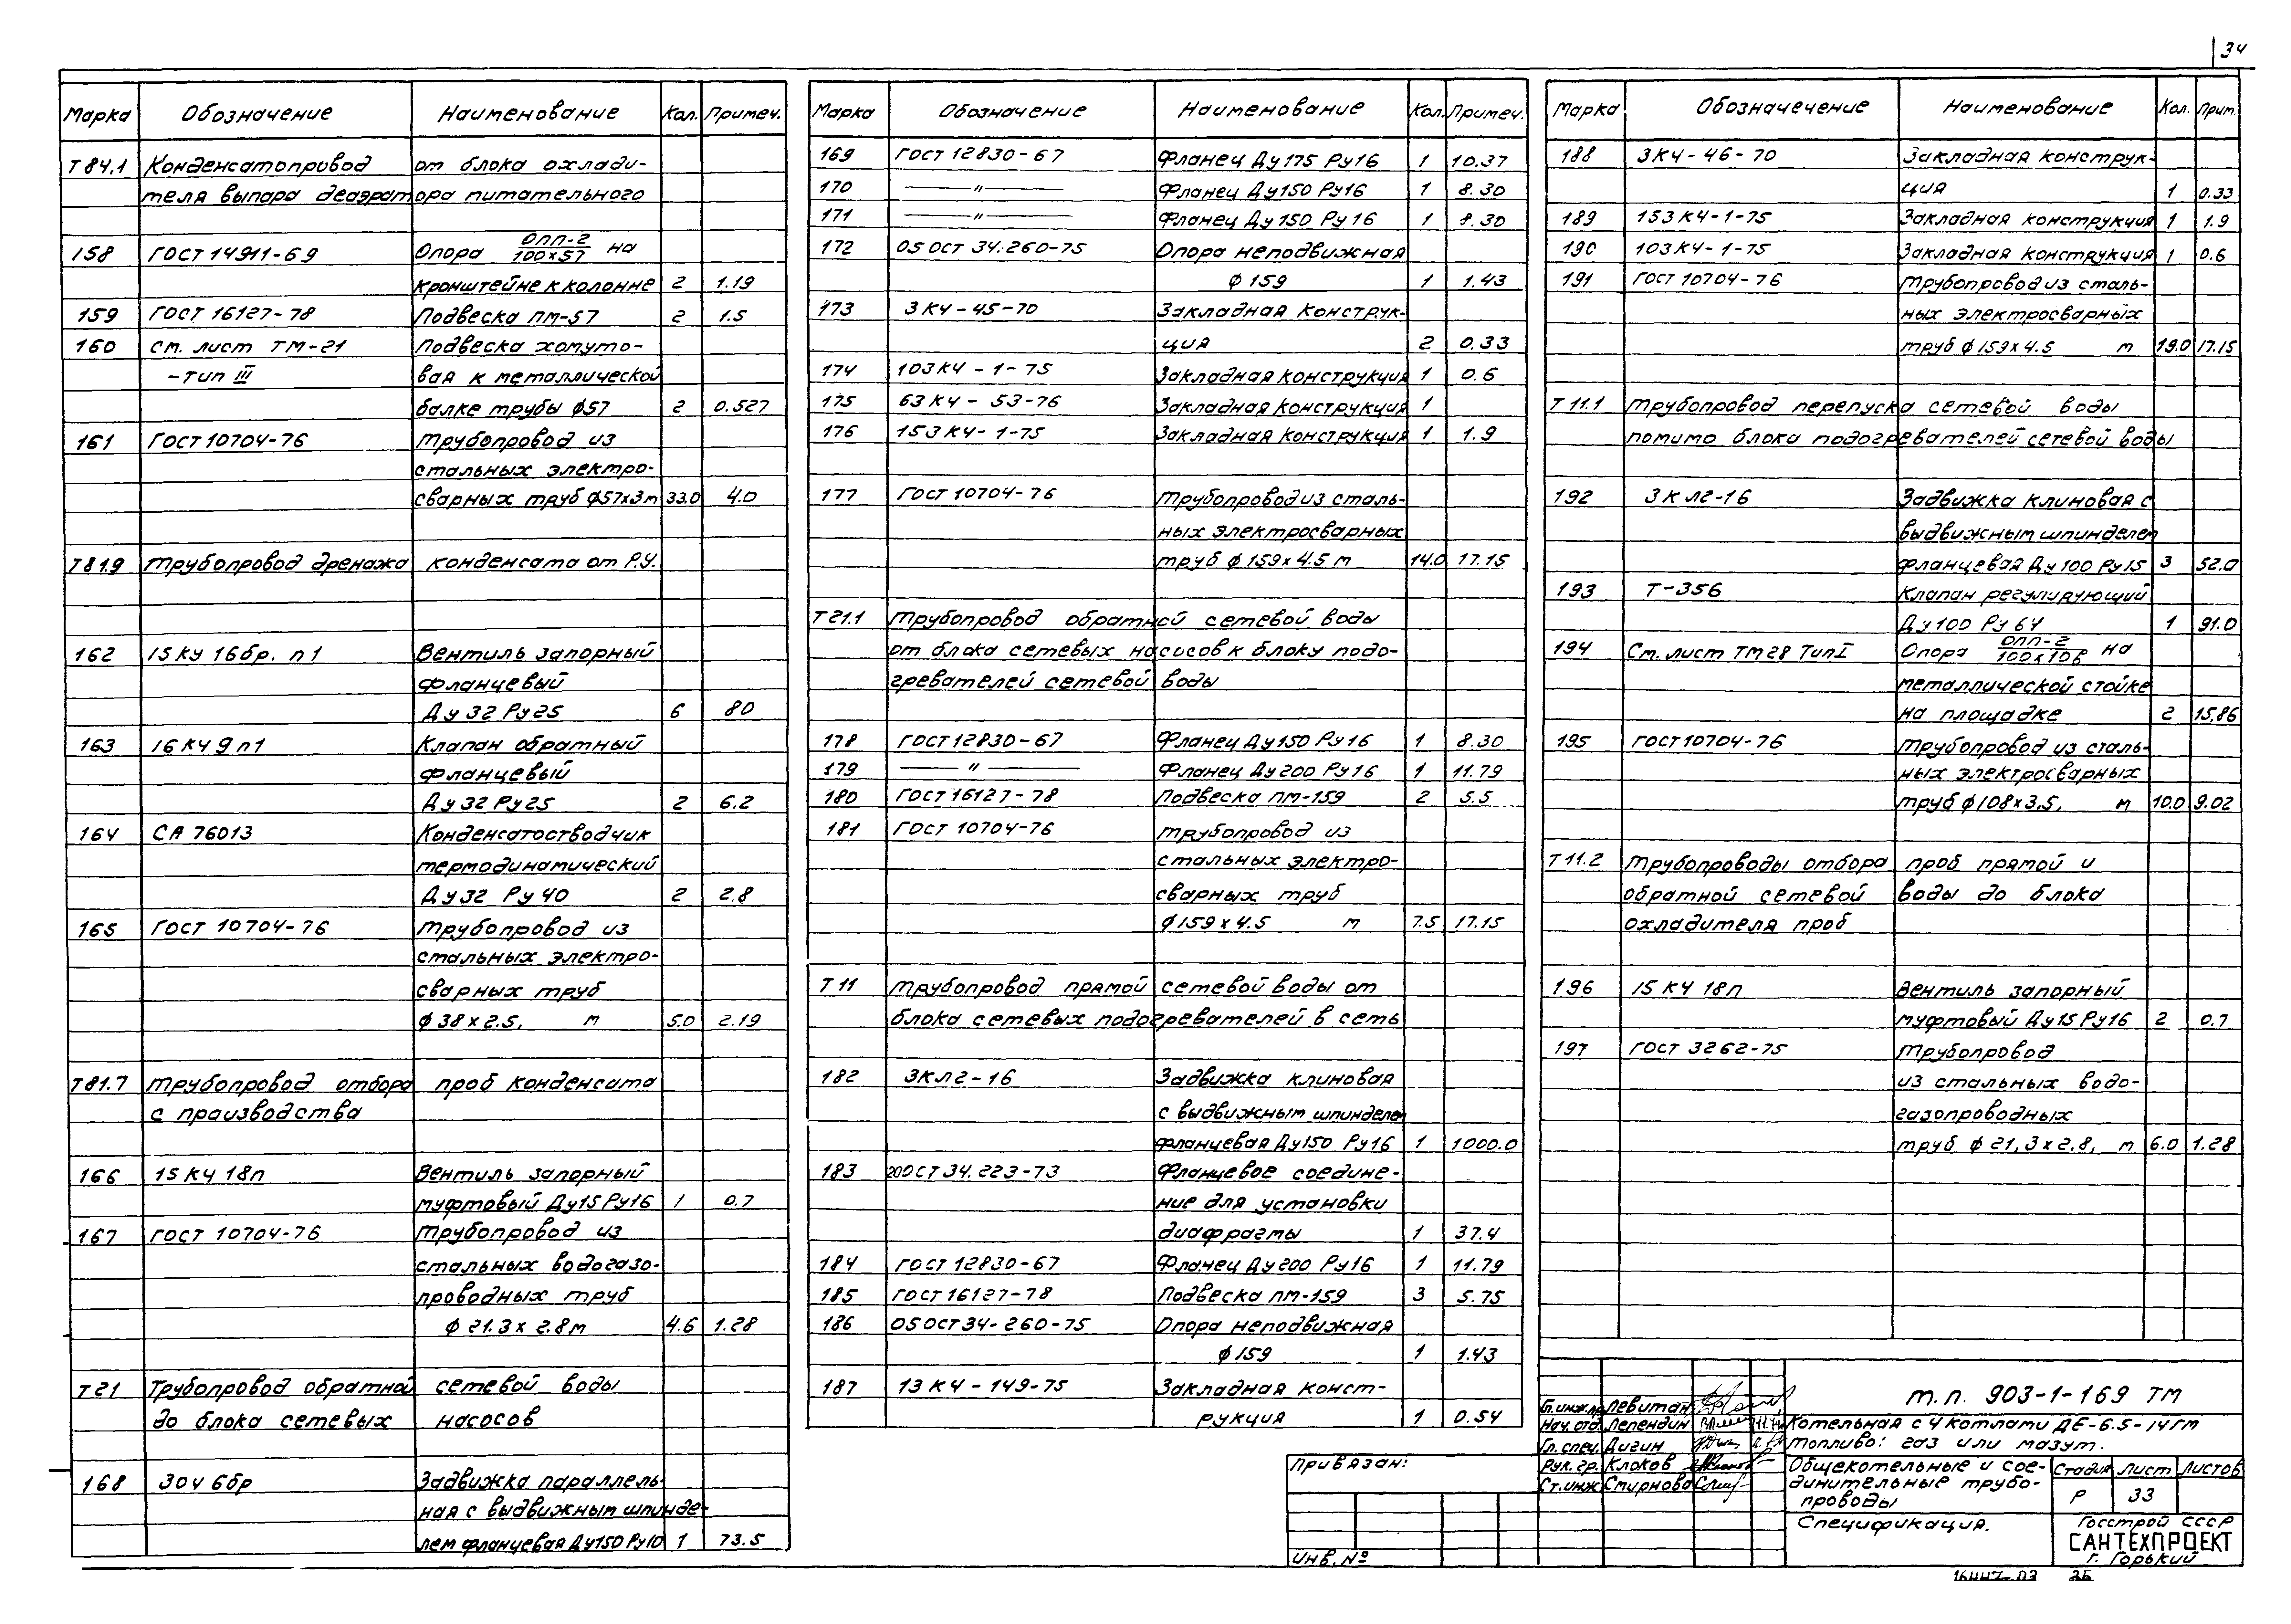 34
Марка Обозначение Наименование Кол. Примеч.
Т84.1 Конденсатопровод от блока охлади-
теля выпара деаэратора питательного
158 ГОСТ 14911-69 Опора ОПП-2/100х57 на
кронштейне к колонне 2 1.19
159 ГОСТ 16127-78 Подвеска ПМ-57 2 1.5
160 см. лист ТМ-21 Подвеска хомуто-
-тип III вая к металлической
балке трубы ф57 2 0.527
161 ГОСТ 10704-76 Трубопровод из
стальных электро-
сварных труб ф57х3 м 33.0 4.0
Т81.9 Трубопровод дренажа конденсата от Р.У.
162 15 КУ 16бр. п1 Вентиль запорный
фланцевый
Ду 32 Ру 25 6 80
163 16 КЧ 9 п1 Клапан обратный
фланцевый
Ду 32 Ру 25 2 6.2
164 СА 76013 Конденсатостводчик
термодинамический
Ду 32 Ру 40 2 2.8
165 ГОСТ 10704-76 Трубопровод из
стальных электро-
сварных труб
ф 38 х 2.5, м 5.0 2.19
Т81.7 Трубопровод отбора проб конденсата
с производства
166 15 КЧ 18п Вентиль запорный
муфтовый Ду 15 Ру 16 1 0.7
167 ГОСТ 10704-76 Трубопровод из
стальных водогазо-
проводных труб
ф 21.3 х 2.8 м 4.6 1.28
Т21 Трубопровод обратной сетевой воды
до блока сетевых насосов
168 30ч 6бр Задвижка параллель-
ная с выдвижным шпинде-
лем фланцевая Ду 150 Ру 10 1 73.5
Марка Обозначение Наименование Кол. Примеч.
169 ГОСТ 12830-67 Фланец Ду 175 Ру 16 1 10.37
170 —〃— Фланец Ду 150 Ру 16 1 8.30
171 —〃— Фланец Ду 150 Ру 16 1 8.30
172 05 ОСТ 34.260-75 Опора неподвижная
ф 159 1 1.43
173 3 КЧ-45-70 Закладная конструк-
ция 2 0.33
174 103 КЧ-1-75 Закладная конструкция 1 0.6
175 63 КЧ-53-76 Закладная конструкция 1
176 153 КЧ-1-75 Закладная конструкция 1 1.9
177 ГОСТ 10704-76 Трубопровод из сталь-
ных электросварных
труб ф 159 х 4.5 м 14.0 17.15
Т21.1 Трубопровод обратной сетевой воды
от блока сетевых насосов к блоку подо-
гревателей сетевой воды
178 ГОСТ 12830-67 Фланец Ду 150 Ру 16 1 8.30
179 —〃— Фланец Ду 200 Ру 16 1 11.79
180 ГОСТ 16127-78 Подвеска ПМ-159 2 5.5
181 ГОСТ 10704-76 Трубопровод из
стальных электро-
сварных труб
ф 159 х 4.5 м 7.5 17.15
Т11 Трубопровод прямой сетевой воды от
блока сетевых подогревателей в сеть
182 ЗКЛ2-16 Задвижка клиновая
с выдвижным шпинделем
фланцевая Ду 150 Ру 16 1 1000.0
183 20 ОСТ 34.223-73 Фланцевое соедине-
ние для установки
диафрагмы 1 37.4
184 ГОСТ 12830-67 Фланец Ду 200 Ру 16 1 11.79
185 ГОСТ 16127-78 Подвеска ПМ-159 3 5.75
186 05 ОСТ 34-260-75 Опора неподвижная
ф 159 1 1.43
187 13 КЧ-149-75 Закладная конст-
рукция 1 0.54
Марка Обозначечение Наименование Кол. Прим.
188 3 КЧ-46-70 Закладная конструк-
ция 1 0.33
189 153 КЧ-1-75 Закладная конструкция 1 1.9
190 103 КЧ-1-75 Закладная конструкция 1 0.6
191 ГОСТ 10704-76 Трубопровод из сталь-
ных электросварных
труб ф 159 х 4.5 м 19.0 17.15
Т11.1 Трубопровод перепуска сетевой воды
помимо блока подогревателей сетевой воды
192 ЗКЛ2-16 Задвижка клиновая с
выдвижным шпинделем
фланцевая Ду 100 Ру 15 3 52.0
193 Т-356 Клапан регулирующий
Ду 100 Ру 64 1 91.0
194 См. лист ТМ 28 Тип I Опора ОПП-2/100х106 на
металлической стойке
на площадке 2 15,86
195 ГОСТ 10704-76 Трубопровод из сталь-
ных электросварных
труб ф 108 х 3.5, м 10.0 9.02
Т11.2 Трубопроводы отбора проб прямой и
обратной сетевой воды до блока
охладителя проб
196 15 КЧ 18п Вентиль запорный
муфтовый Ду 15 Ру 16 2 0.7
197 ГОСТ 3262-75 Трубопровод
из стальных водо-
газопроводных
труб ф 21,3 х 2.8, м 6.0 1.28
Привязан:
Инв. №
Гл. инж. пр. Левитан
Нач. отд. Лепендин
Гл. спец. Дигин
Рук. гр. Клоков
Ст. инж Смирнова
т.п. 903-1-169 ТМ
Котельная с 4 котлами ДЕ-6.5-14ГМ
Топливо: газ или мазут.
Общекотельные и сое-
динительные трубо-
проводы
Стадия Лист Листов
Р 33
Спецификация.
Госстрой СССР
САНТЕХПРОЕКТ
г. Горький
16447-03 35